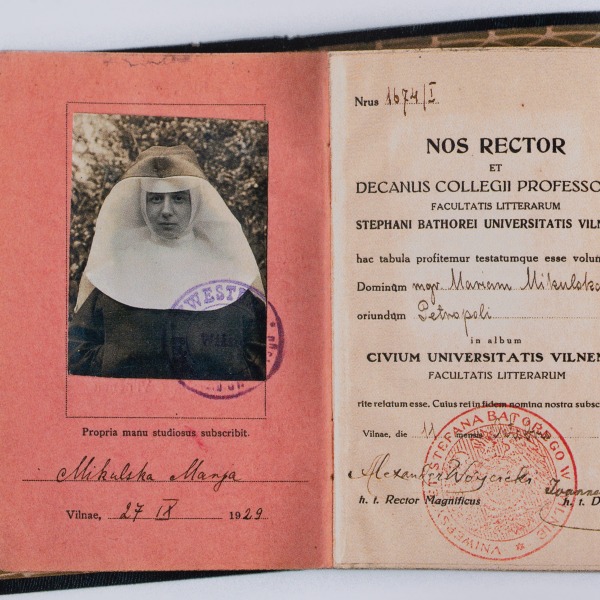 WEST
Propria manu studiosus subscribit.
Mikulska Marja
Vilnae, 27 IX 1929
Nrus 1674/I
NOS RECTOR
ET
DECANUS COLLEGII PROFESSO
FACULTATIS LITTERARUM
STEPHANI BATHOREI UNIVERSITATIS VILN
hac tabula profitemur testatumque esse volum
Dominum mgr. Mariam Mikulska
oriundum Petropoli
in album
CIVIUM UNIVERSITATIS VILNEN
FACULTATIS LITTERARUM
rite relatum esse. Cuius rei in fidem nomina nostra subsc
Vilnae, die 11 mensis
STEFANA BATOREGO W
Alexander Wóycicki
Joannes
h. t. Rector Magnificus
h. t. D